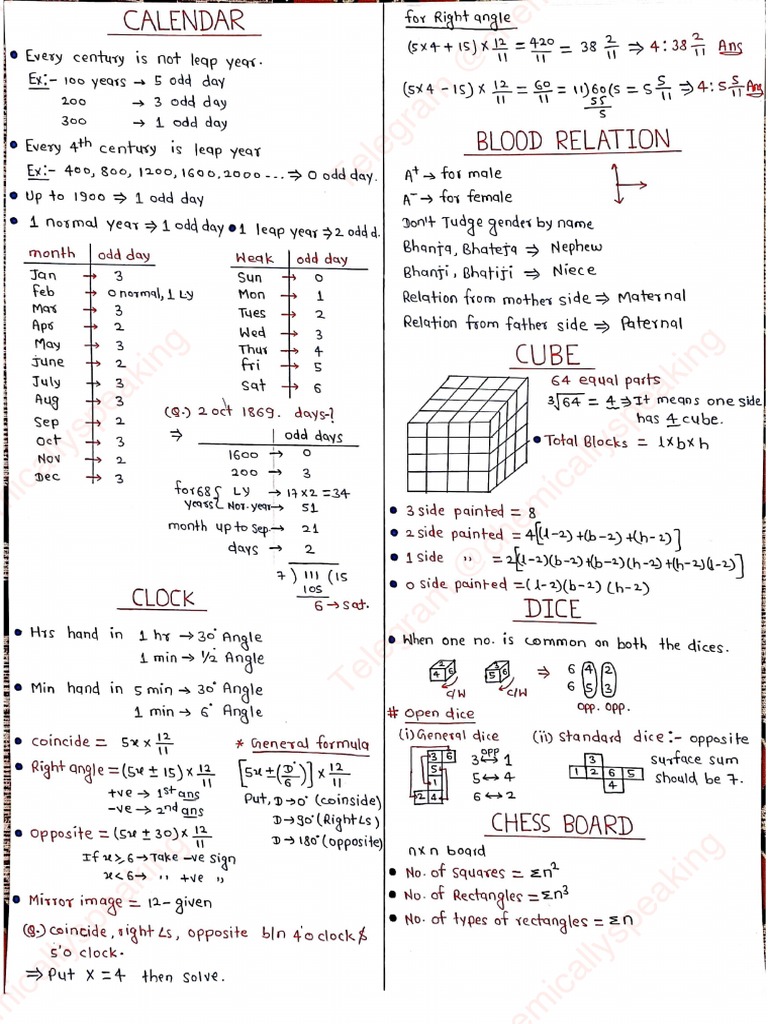 CALENDAR
• Every century is not leap year.
Ex:- 100 years → 5 odd day
200 → 3 odd day
300 → 1 odd day
• Every 4th century is leap year
Ex:- 400, 800, 1200, 1600, 2000 --- ⇒ 0 odd day.
• Up to 1900 ⇒ 1 odd day
• 1 normal year ⇒ 1 odd day • 1 leap year ⇒ 2 odd d.
month odd day
Jan → 3
feb → 0 normal, 1 LY
Mar → 3
Apr → 2
May → 3
June → 2
July → 3
Aug → 3
Sep → 2
Oct → 3
Nov → 2
Dec → 3
Weak odd day
Sun → 0
Mon → 1
Tues → 2
Wed → 3
Thur → 4
fri → 5
Sat → 6
(Q.) 2 oct 1869. days-?
⇒ odd days
1600 → 0
200 → 3
for 68 years { LY → 17×2 = 34
Nor. year → 51
month up to Sep. → 21
days → 2
7 ) 111 ( 15
105
6 → sat.
CLOCK
• Hrs hand in 1 hr → 30° Angle
1 min → 1/2° Angle
• Min hand in 5 min → 30° Angle
1 min → 6° Angle
• coincide = 5x × 12/11
• Right angle = (5x ± 15) × 12/11
+ve → 1st ans
-ve → 2nd ans
• opposite = (5x ± 30) × 12/11
If x ≥ 6 → Take -ve sign
x < 6 → " +ve "
* General formula
[5x ± (D°/6)] × 12/11
Put, D → 0° (coinside)
D → 90° (Right ∠s)
D → 180° (opposite)
• Mirror image = 12 - given
(Q.) coincide, right ∠s, opposite b/n 4'0 clock &
5'0 clock.
⇒ Put X = 4 then solve.
for Right angle
(5×4 + 15) × 12/11 = 420/11 = 38 2/11 ⇒ 4:38 2/11 Ans
(5×4 - 15) × 12/11 = 60/11 = 11)60(5 = 5 5/11 ⇒ 4:5 5/11 Ans
55
5
BLOOD RELATION
A+ → for male
A- → for female
Don't Judge gender by name
Bhanja, Bhateja ⇒ Nephew
Bhanji, Bhatiji ⇒ Niece
Relation from mother side ⇒ Maternal
Relation from father side ⇒ Paternal
CUBE
64 equal parts
3√64 = 4 ⇒ It means one side
has 4 cube.
• Total Blocks = l×b×h
• 3 side painted = 8
• 2 side painted = 4[(l-2)+(b-2)+(h-2)]
• 1 side " = 2[(l-2)(b-2)+(b-2)(h-2)+(h-2)(l-2)]
• 0 side painted = (l-2)(b-2)(h-2)
DICE
• When one no. is common on both the dices.
C/W C/W ⇒ 6 4 2
6 5 3
opp. opp.
# Open dice
(i) General dice
3 6
5
1
2 4
3 ↔ 1
opp
5 ↔ 4
6 ↔ 2
(ii) Standard dice :- opposite
surface sum
should be 7.
3
1 2 6 5
4
CHESS BOARD
n×n board
• No. of Squares = Σn²
• No. of Rectangles = Σn³
• No. of types of rectangles = Σn
Telegram @chemicallyspeaking